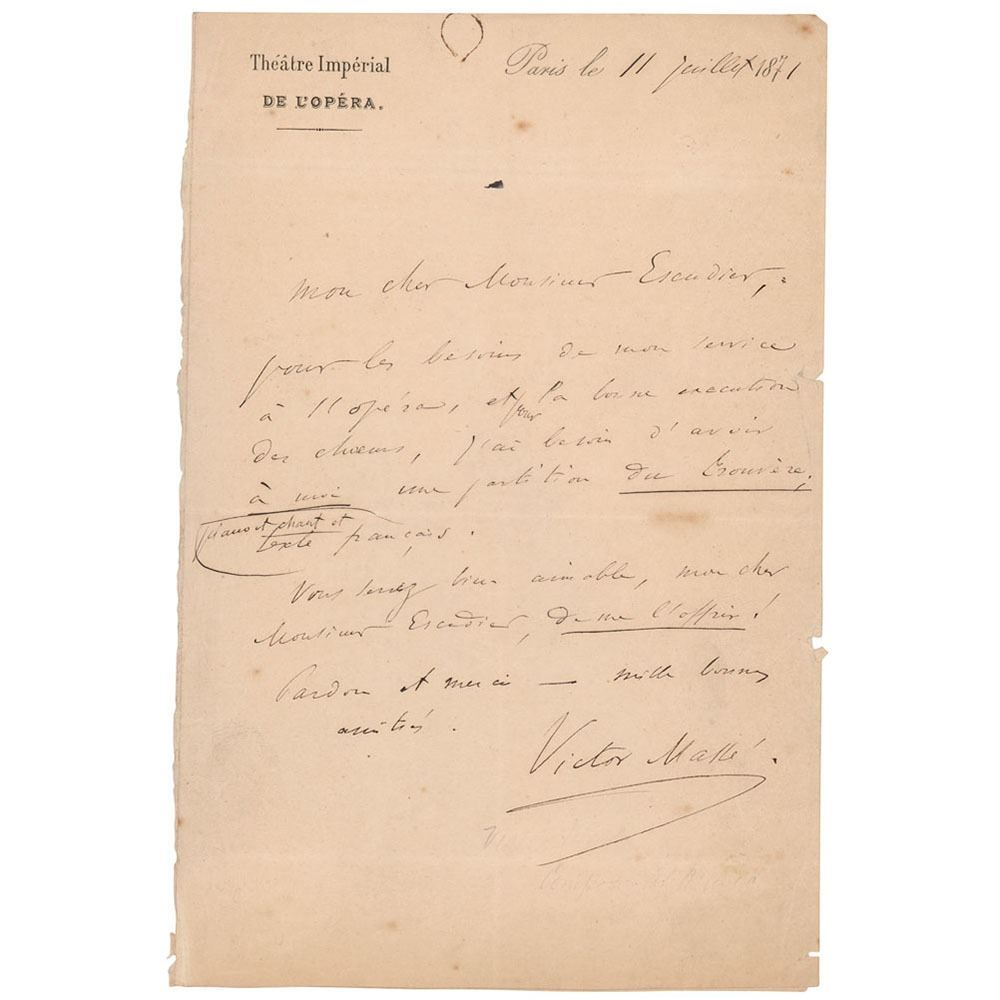 Théâtre Impérial
DE L'OPÉRA.
Paris le 11 juillet 1871
mon cher Monsieur Escudier,
pour les besoins de mon service
à l'opéra, et pour la bonne execution
des chœurs, j'ai besoin d'avoir
à moi une partition du Trouvère,
piano et chant et
texte français.
Vous serez bien aimable, mon cher
Monsieur Escudier, de me l'offrir !
Pardon et merci — mille bonnes
amitiés.
Victor Massé.